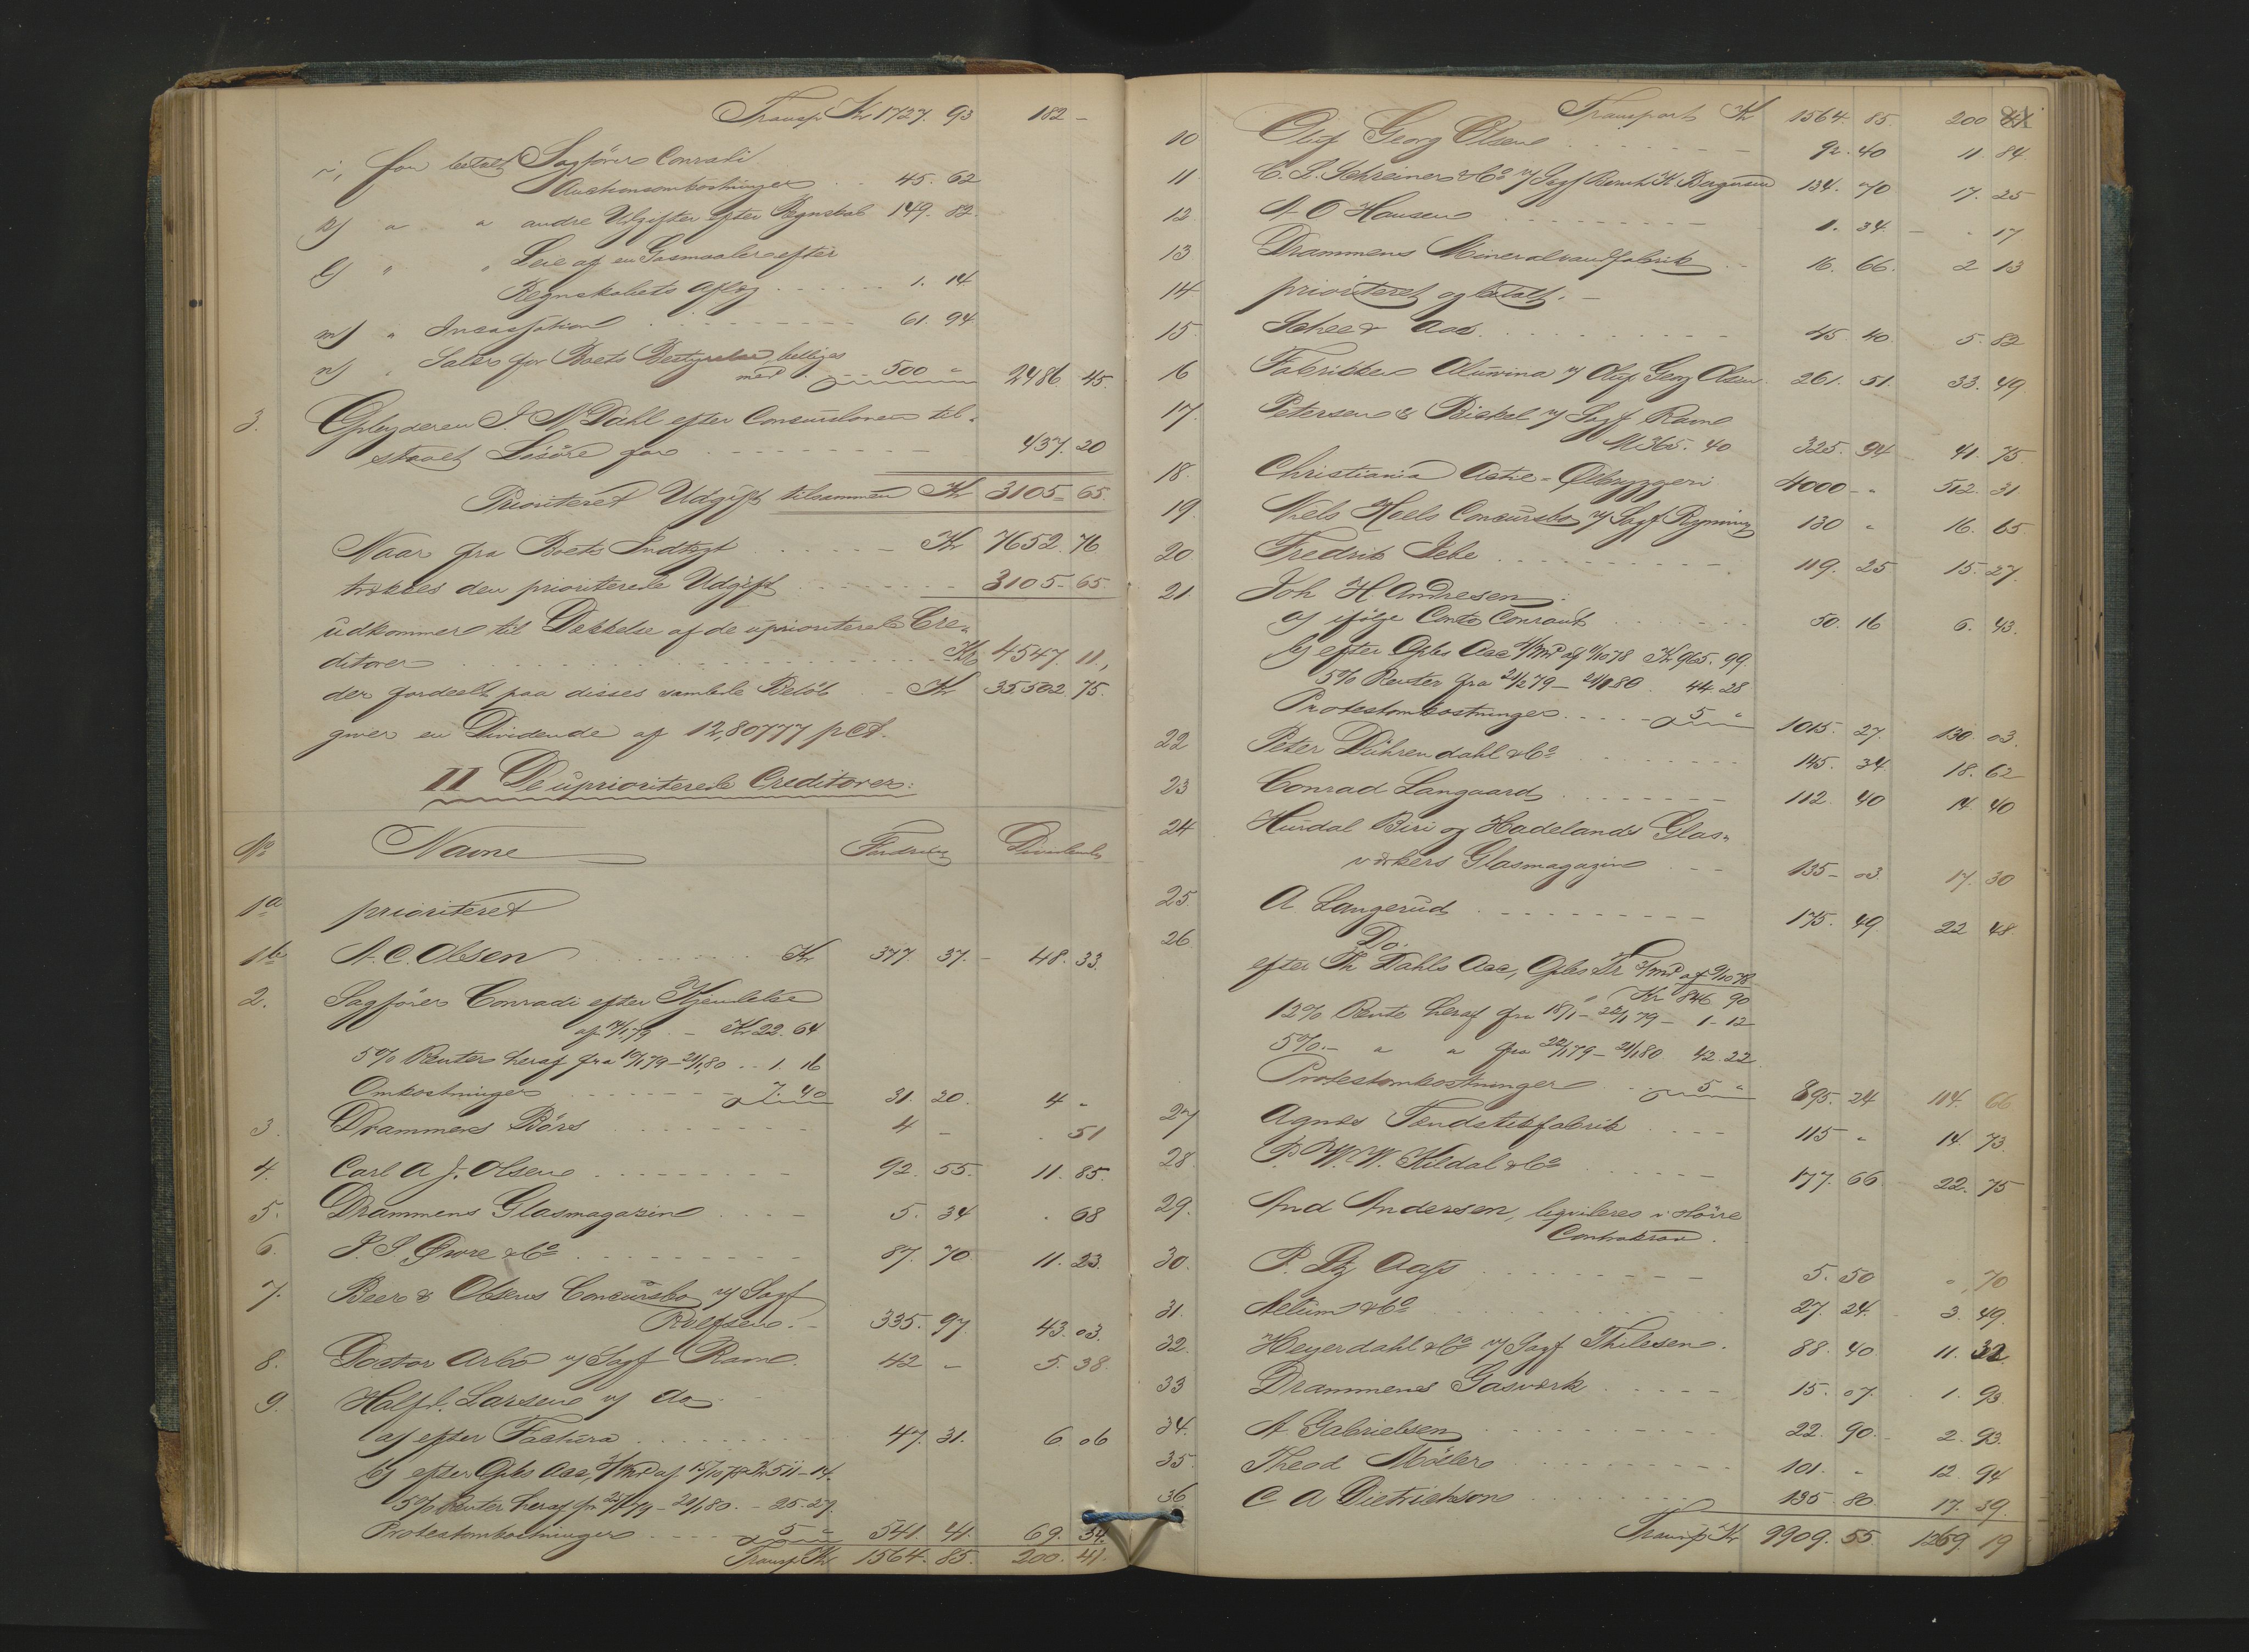 Transp. Kr 1727. 93 182 -
i, for betalt Sagfører Conradi
Auctionsomkostninger . . 45. 62
k) " " andre Udgifter efter Regnskab 149. 82.
l) " " Leie af en Gasmaaler efter
Regnskabets Aflæg . . . . . . 1. 14
m) " Incassation . . . . . . . 61. 94
n) " Salær for Boets Bestyrelse, billiges
med . . . 500 " 2486. 45.
3. Gpleyderen J. N. Dahl efter Concursloven til-
staaet Løsøre for . . . . . . . 437. 20
Prioriteret Udgift tilsammen Kr 3105 = 65.
Naar fra Boets Indtægt . . . . - Kr 7652. 76
trækkes den prioriterede Udgift . . . . . . 3105 - 65.
udkommer til Dækkelse af de uprioriterede Cre-
ditorer . . . . . . . . . . . Kr 4547. 11.,
der fordeelt paa disses samlede Beløb - Kr 35502. 75.
giver en Dividende af 12,80777 pCt.
II De uprioriterede Creditorer:
No Navne Fordring Dividende
1a prioriteret
1b A. C. Olsen . . . . . . . Kr 377 37. - 48. 33.
2. Sagfører Conradi efter Kjendelse
af 14/1 79 . - Kr 22. 64
5% Renter heraf fra 10/1 79 - 21/1 80 . . 1. 16
Omkostninger . . . . . . . 7. 40 31. 20. 4 "
3. Drammens Börs . . . . . . . 4 - . 51
4. Carl A J. Olsen . . . . . . . 92. 55. 11. 85.
5. Drammens Glasmagazin . . . - 5. 34 . 68
6. P. S. Øwre & Co . . . . . . . 87. 70 11. 23.
7. Beer & Olsens Concursbo v/ Sagf
Rolfsen. - 335. 97. 43. 03.
8. Doctor Arbo v/ Sagf Ravn. 42 - 5. 38.
9. Halfd. Larsen v/ do -
a) efter Factura . . . . . . . 47. 31. 6. 06
b) efter Gjbs Acc, 3/Md af 15/10 78 Kr 511 - 14.
5% Renter heraf fra 25/1 79 - 21/1 80. - 25. 27.
Protestomkostninger . . . . - 5 " 541. 41. 69. 34.
Transp. Kr 1564. 85. 200. 41.
Transport Kr 1564 85. 200 41
81
10 Oluf Georg Olsen . . . . . . . 92. 40 11. 84.
11 C. S. Schreiner & Co v/ Sagf Bernh. K. Bergersen 134. 70 17. 25
12 A O Hansen . . . . . . . 1. 34. - . 17
13 Drammens Mineralvandfabrik . . - 16. 66. 2 13
14 prioriteret og betalt. -
15. Schee & Aas . . . . . . . 45 40 5. 82
16 Fabrikken Aluvina v/ Oluf Georg Olsen 261. 51. 33. 49
17. Petersen & Bickel v/ Sagf Ravn
M 365. 40 325. 94 41. 75
18. Christiania Actie-Ølbryggeri 4000 - " 512. 31
19. Niels Hoels Concursbo v/ Sagf Rynning 130 " 16. 65
20. Fredrik Jebe . . . . . . . 119. 25 15. 27.
21 Joh H. Andresen :
a) ifølge Conto Conrant . . . . . . 50. 16 6. 43.
b) efter Gjbs Acc 4/Md af 1/10 78 Kr 965. 99.
5% Renter fra 21/2 79 - 21/1 80 . 44. 28
Protestomkostninger . . . . - 5 " 1015. 27. 130. 03.
22 Peter Dühren dahl & Co . . . . . . 145. 34 18. 62
23 Conrad Langaard . . . . . . . 112. 40 14. 40
24 Hurdal Biri og Hadelands Glas-
værkers Glasmagazin . - - 135 - 03. 17. 30
25. A. Langerud . . . . . . . 175. 49 22 48.
26. Do.
efter Th Dahls Acc, Gjbs Dr 3/Md af 9/10 78
Kr 846 90
12% Rente heraf fra 18/1 - 22/1 79 - 1 - 12
5%. - " " fra 22/1 79 - 21/1 80 42. 22
Protestomkostninger . . . 5 " 895. 24 114. 66
27 Agnes Tændstikfabrik . . . - 115 " 14. 73.
28. P. W. W. Kildal & Co . . . . - 177. 66 22. 75
29. And Andersen, liqvideres i større
Contrakrav.
30. P. Ltz Aass . . . . . . . 5. 50 ". 70
31. Melum & Co . . . . . . . 27. 24. 3. 49.
32. Heyerdahl & Co v/ Sagf Thilesen. 88. 40. 11. 32.
33 Drammens Gasværk . . . . . - 15. 07. 1. 93
34. A Gabrielsen . . . . . . . 22. 90. 2. 93.
35. Theod Möller . . . . . . . 101. " 12. 94
36 C A Dietrichson . . . . . . . 135. 80. 17. 39.
Transp. Kr 9909. 55. 1269. 19